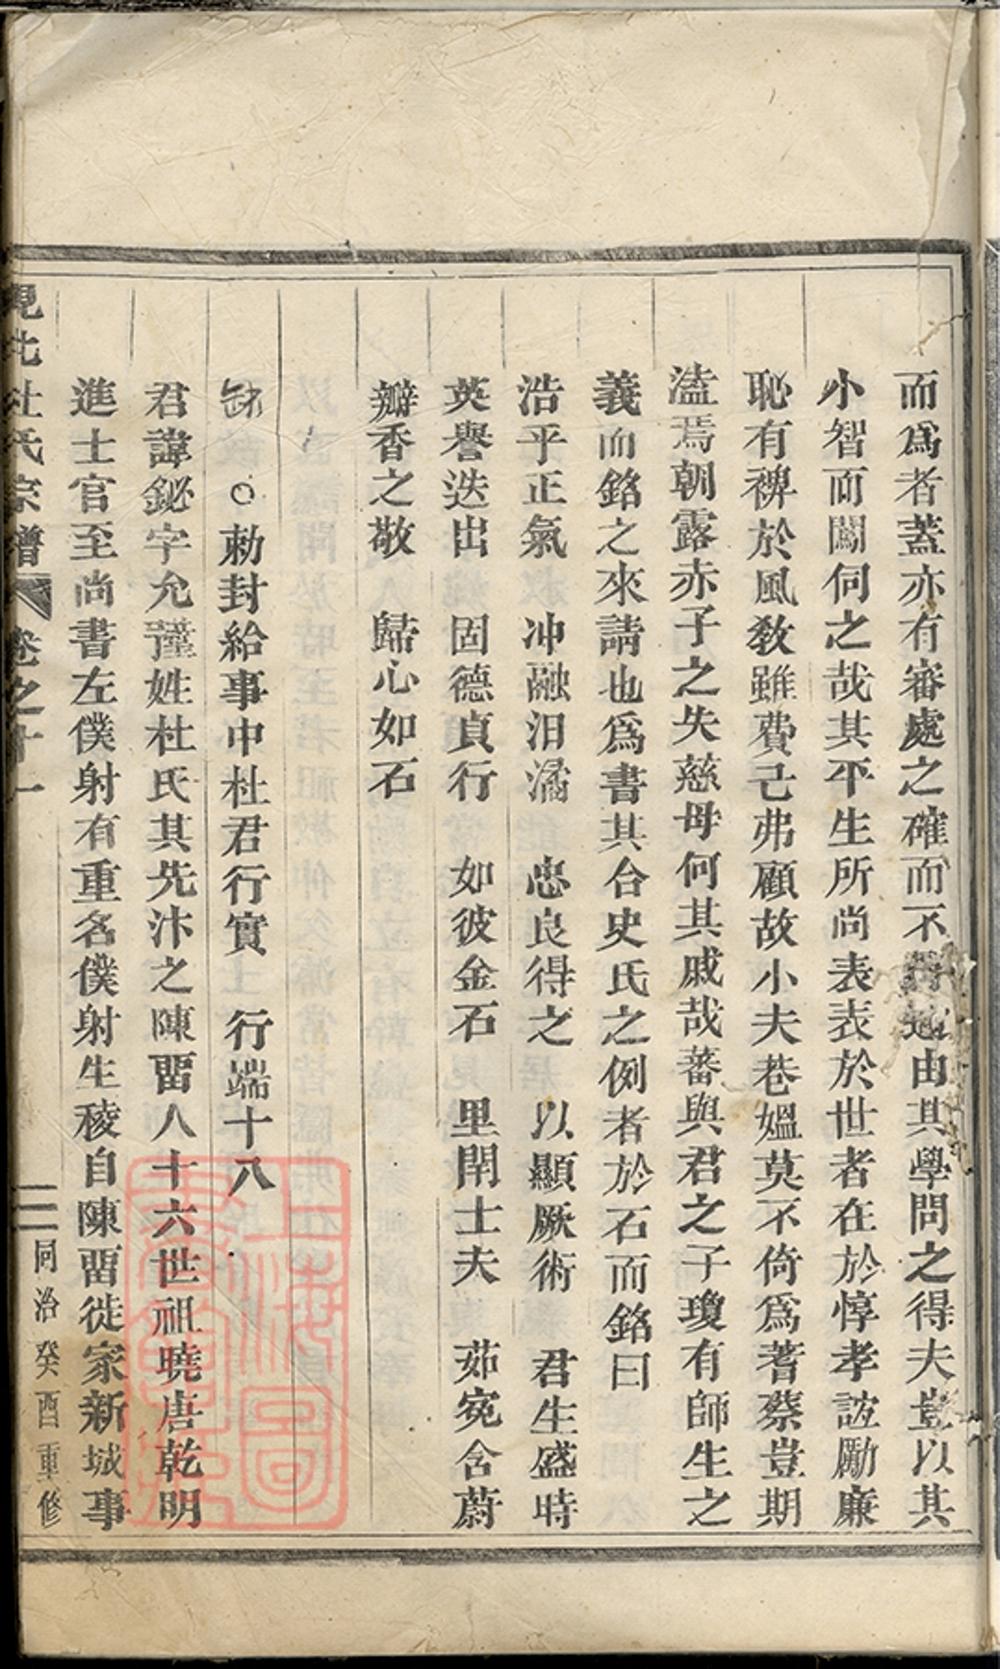 而爲者蓋亦有審處之確而不由其學問之得夫豈以其
小智而闖伺之哉其平生所尚表表於世者在於惇孝誼勵廉
恥有裨於風敎雖費己弗顧故小夫巷媼莫不倚爲蓍蔡豈期
溘焉朝露赤子之失慈母何其戚哉蕃與君之子瓊有師生之
義而銘之來請也爲書其合史氏之例者於石而銘曰
浩乎正氣 冲融汨潏 忠良得之 以顯厥術 君生盛時
英譽迭出 固德貞行 如彼金石 里閈士夫 茹宛含蔚
瓣香之敬 歸心如石
○勅封給事中杜君行實 行端十八
君諱鉍字允謹姓杜氏其先汴之陳畱八十六世祖曉唐乾明
進士官至尚書左僕射有重名僕射生稜自陳畱徙家新城事
杜氏宗譜 卷之十一 三 同治癸酉重修